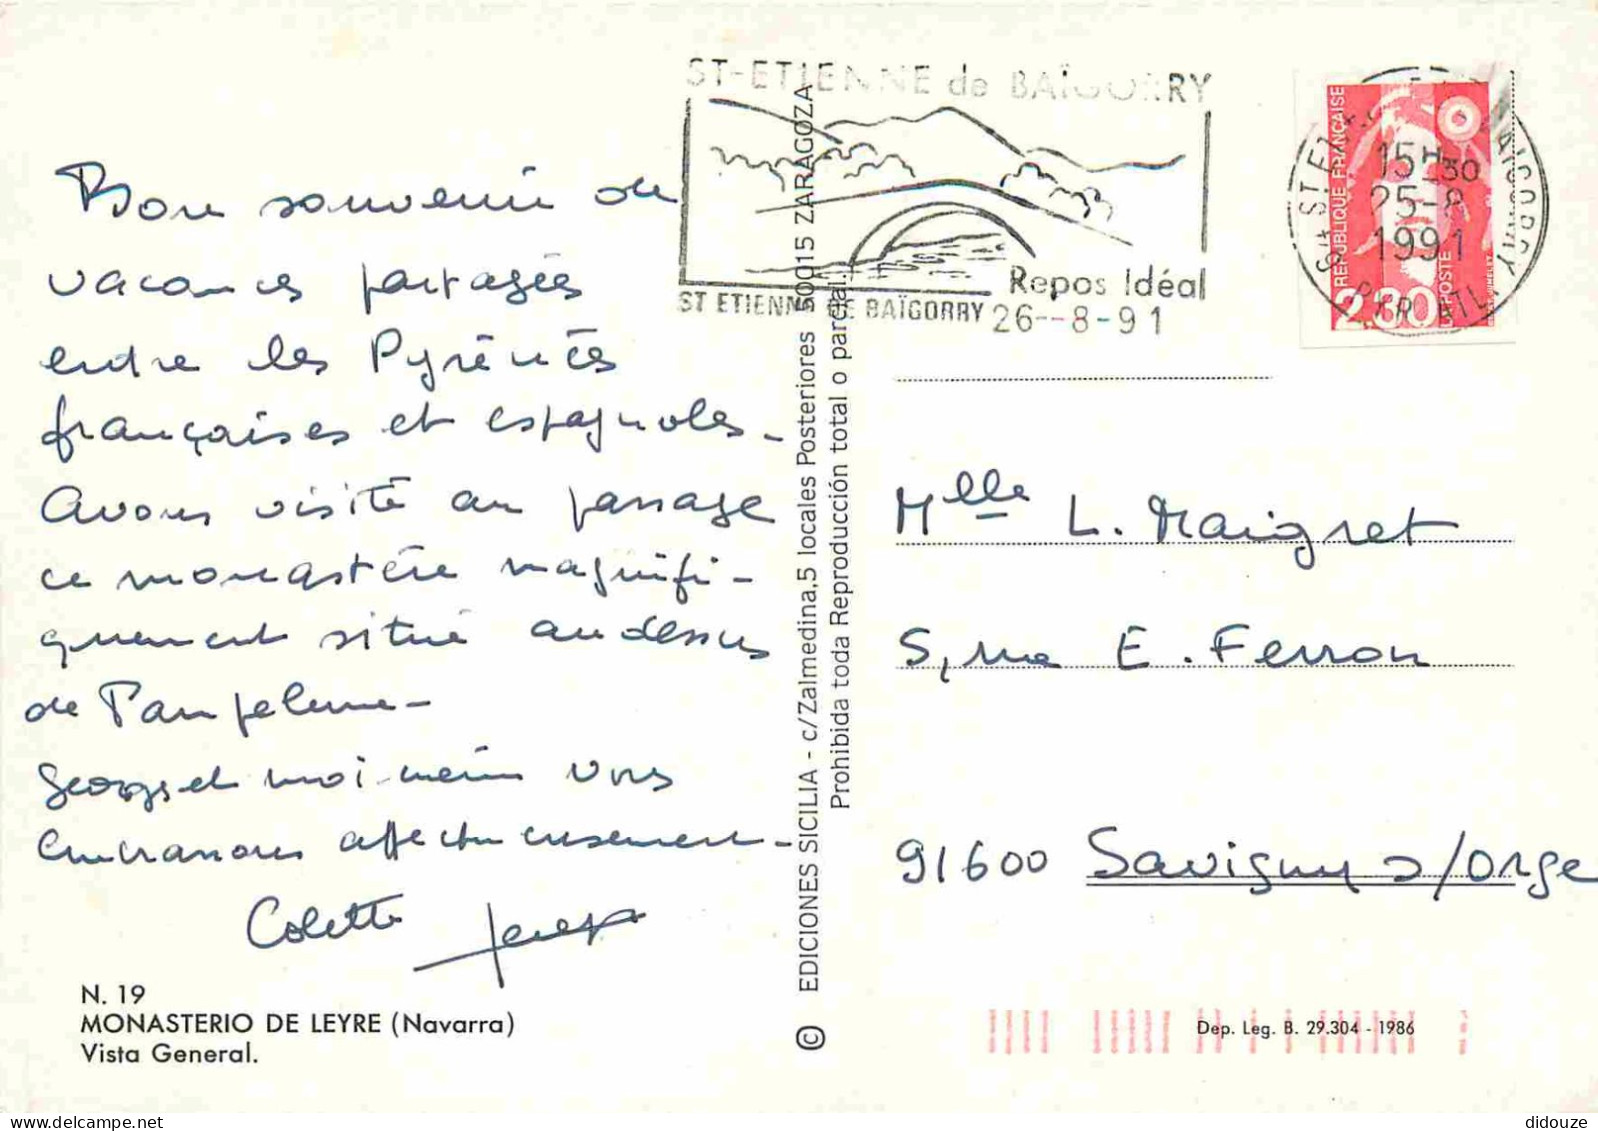 Bon souvenir de
vacances partagées
entre les Pyrénées
françaises et espagnoles.
Avons visité au passage
ce monastère magnifi-
quement situé au dessus
de Pampelune.
Georges et moi-même vous
embrassons affectueusement.
Colette
N. 19
MONASTERIO DE LEYRE (Navarra)
Vista General.
© EDICIONES SICILIA - c/Zalmedina,5 locales Posteriores 50015 ZARAGOZA
Prohibida toda Reproducción total o parcial.
ST-ETIENNE de BAÏGORRY
Repos Idéal
ST ETIENNE DE BAÏGORRY 26--8-91
15H30
25-8
1991
REPUBLIQUE FRANÇAISE
2,30
POSTE
Mlle L. Maigret
5, rue E. Ferron
91600 Savigny s/Orge
Dep. Leg. B. 29.304 - 1986
didouze